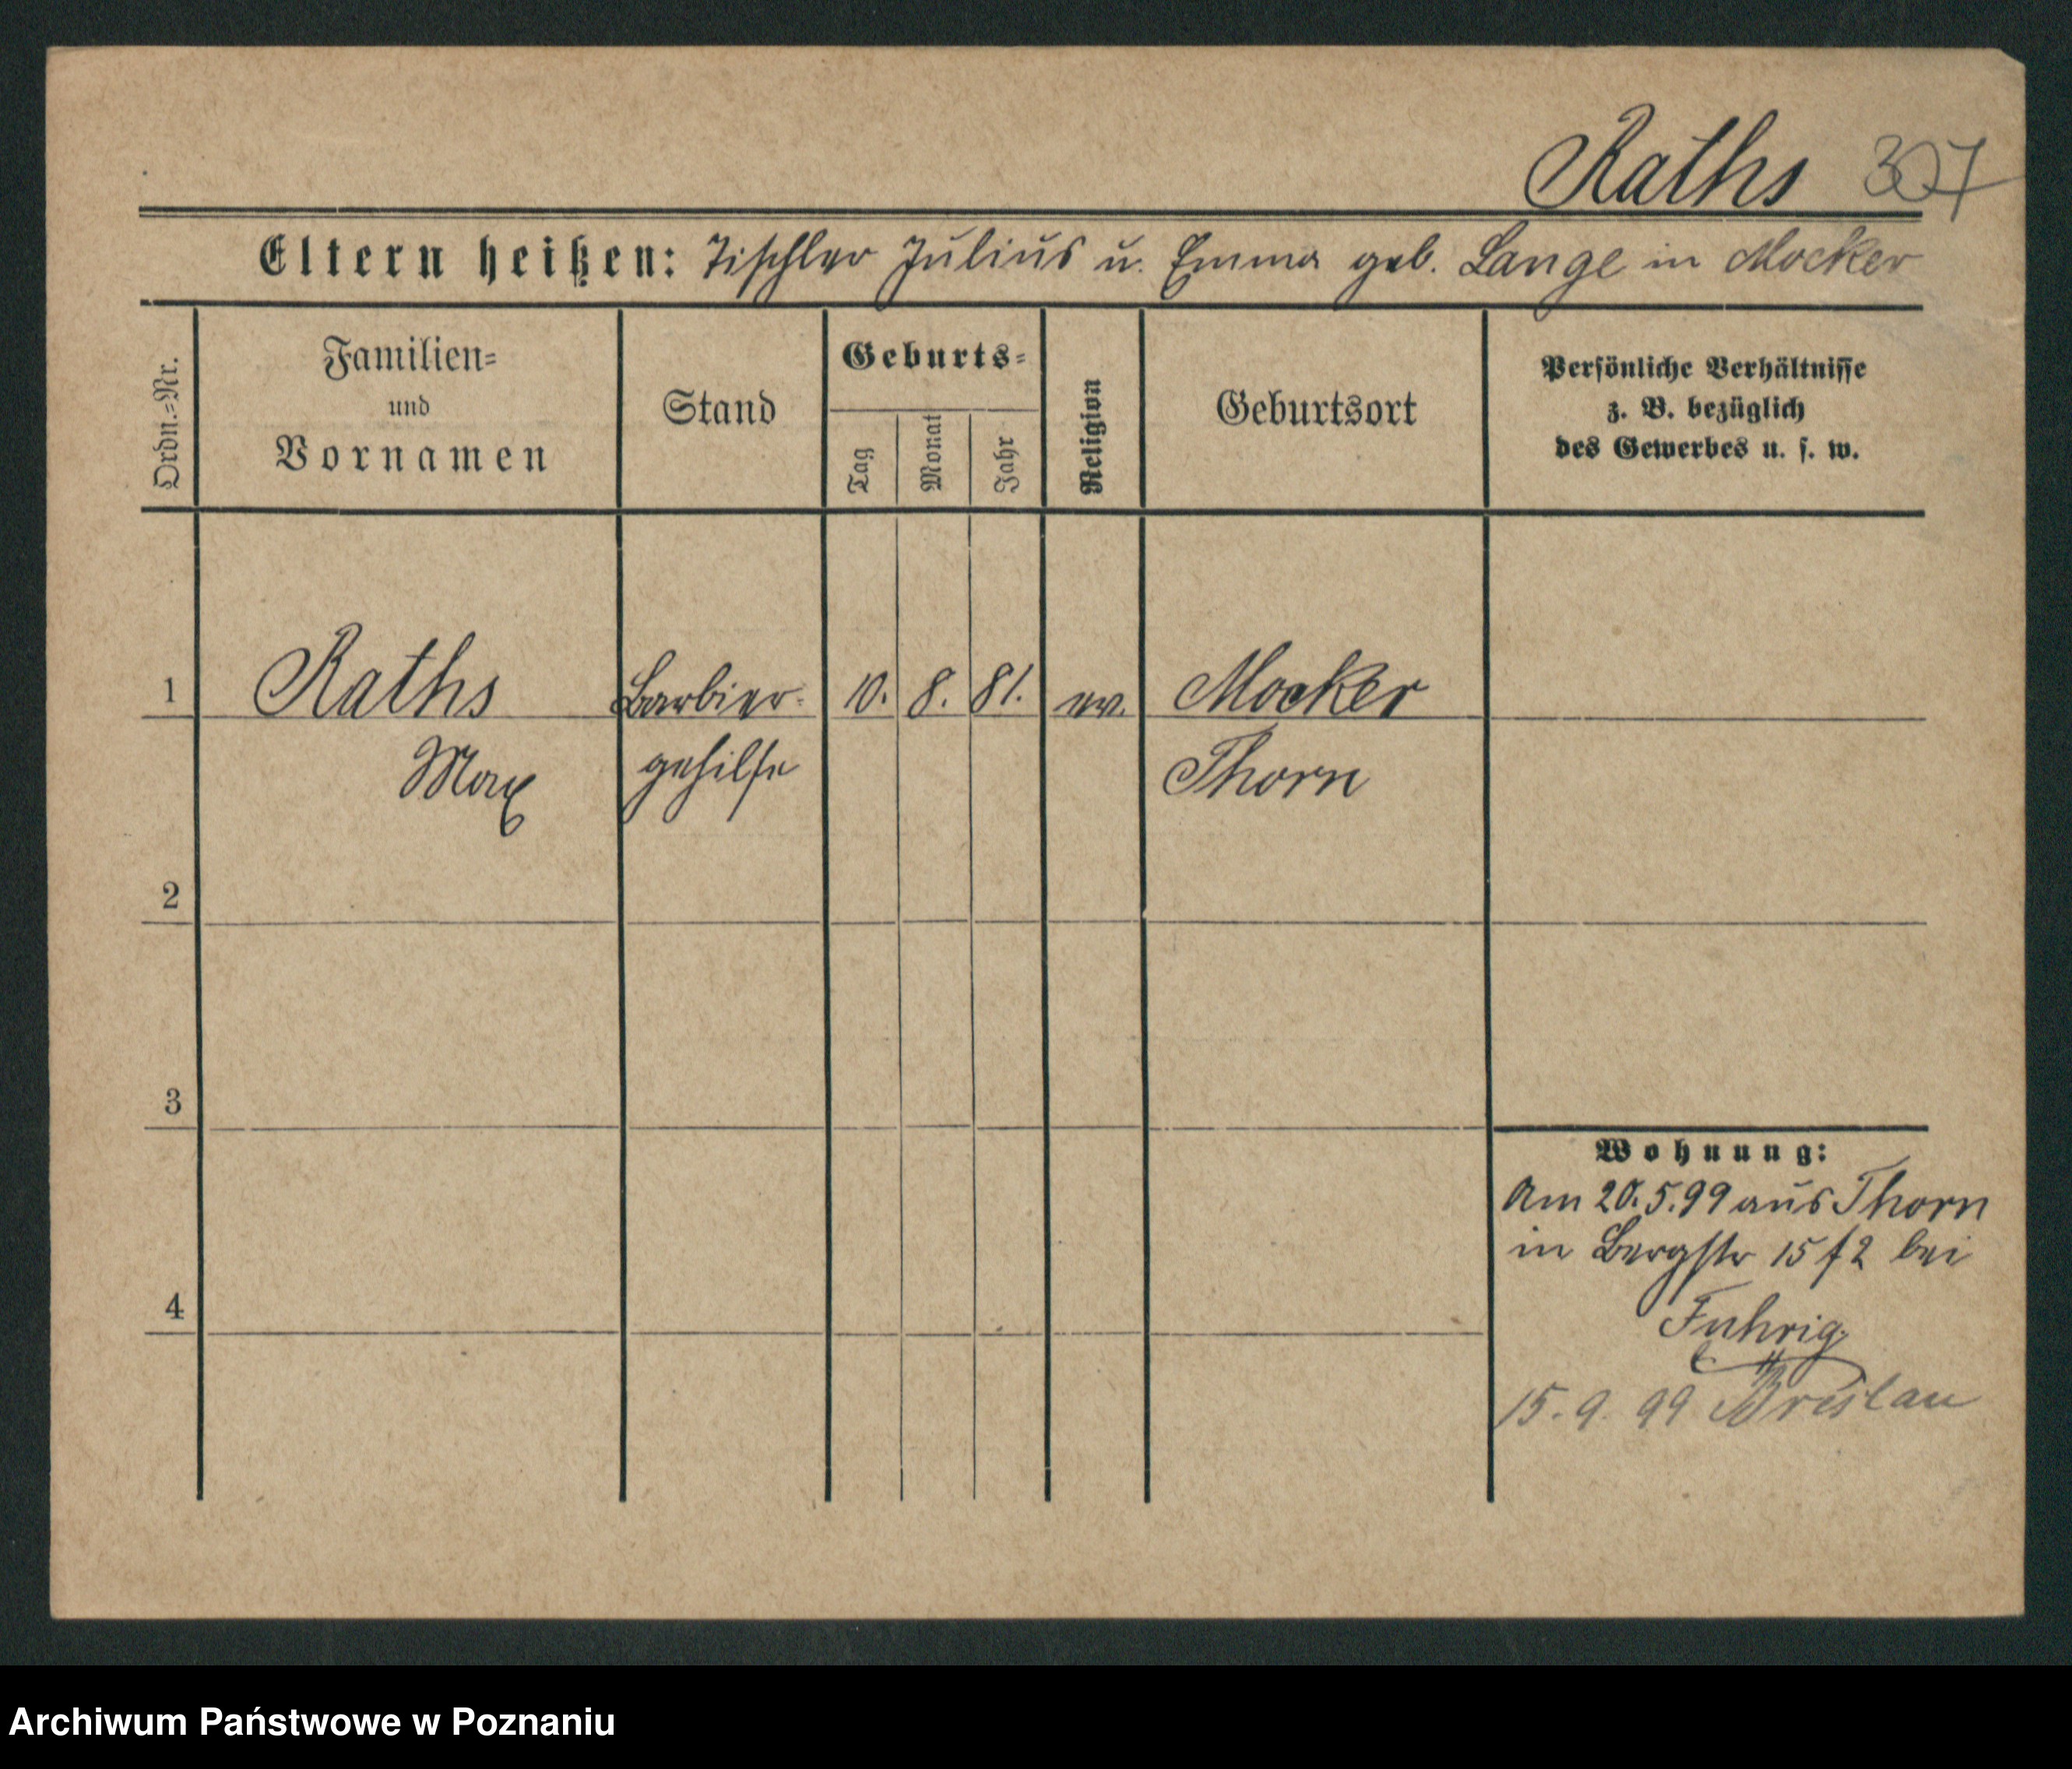 Raths 307
Eltern heißen: Tischler Julius u. Emma geb. Lange in Mocker
Ordn.=Nr.
Familien=
und
Vornamen
Stand
Geburts=
Tag
Monat
Jahr
Religion
Geburtsort
Persönliche Verhältnisse
z. B. bezüglich
des Gewerbes u. s. w.
1 Raths Barbier- 10. 8. 81. ev. Mocker
Max gehilfe Thorn
2
3
Wohnung:
Am 20.5.99 aus Thorn
in Bergstr 15 f 2 bei
4
Fuhrig
15. 9. 99 Breslau
Archiwum Państwowe w Poznaniu